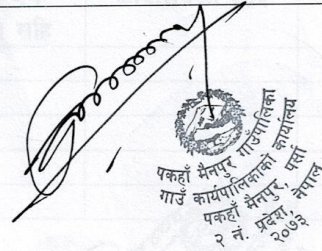 पकहाँ मैनपुर गाउँपालिका
गाउँ कार्यपालिकाको कार्यालय
पकहाँ मैनपुर, पर्सा
२ नं. प्रदेश, नेपाल
२०७३